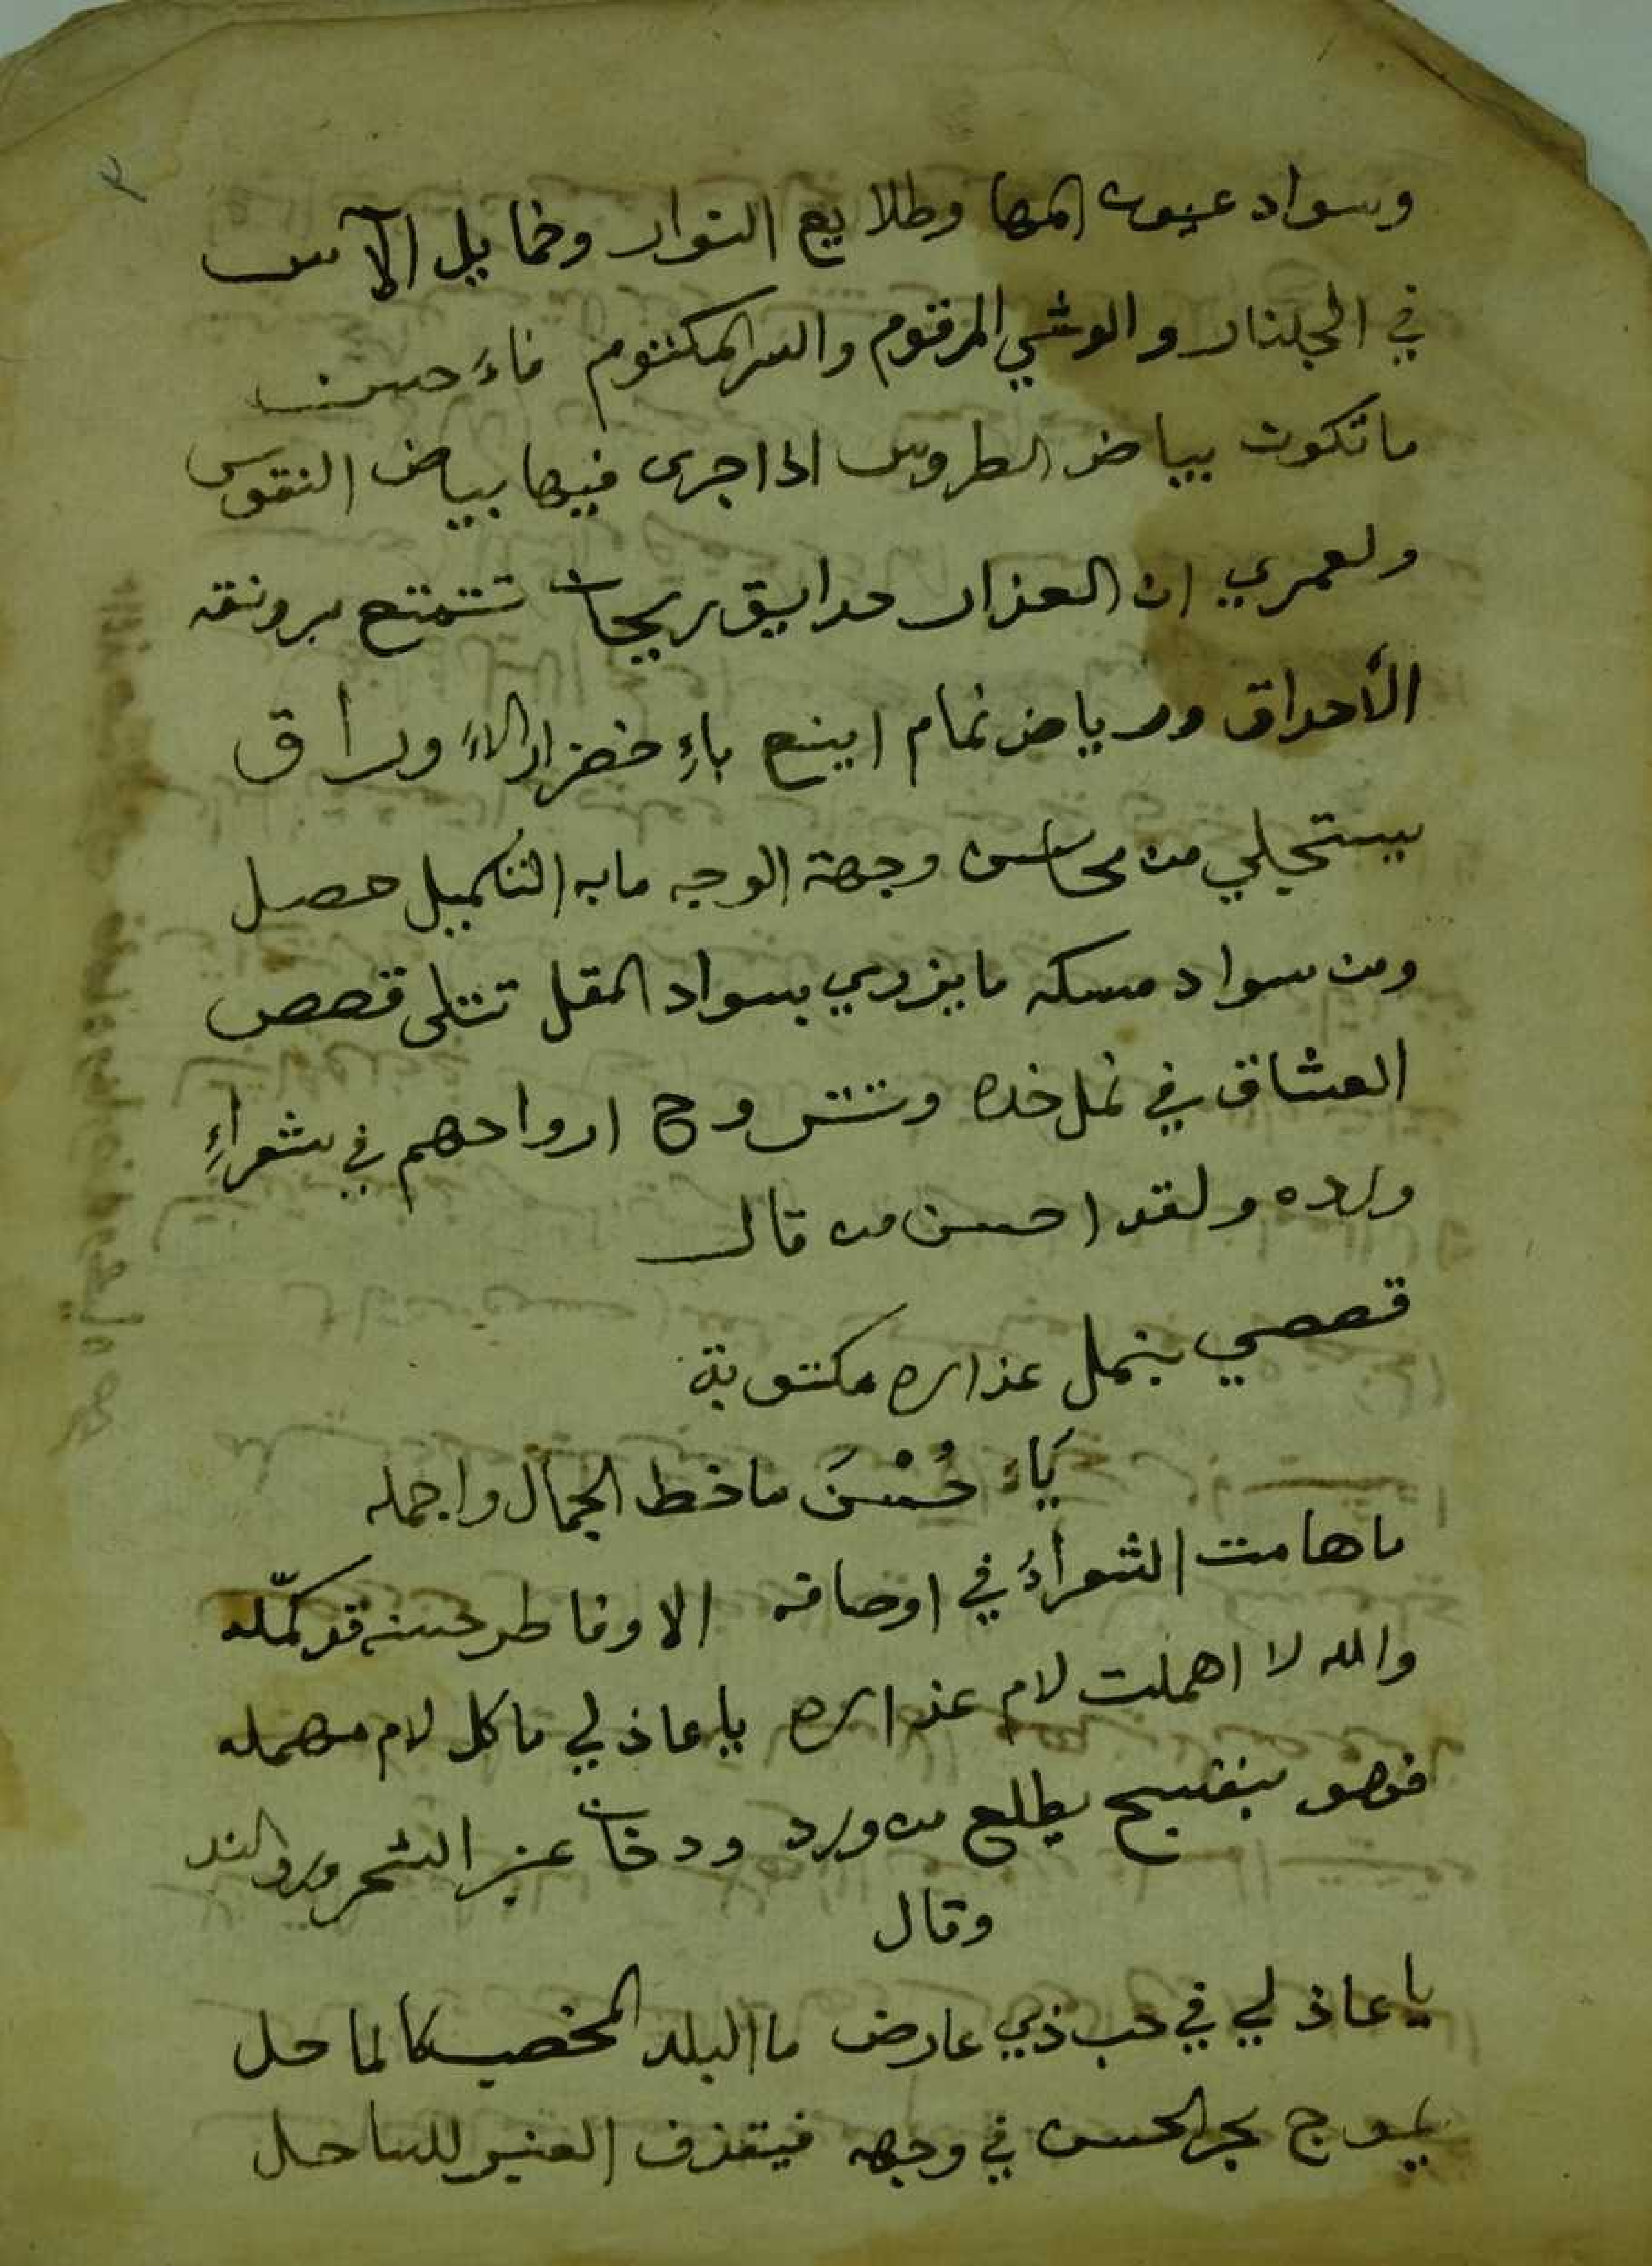 ٣
وسواد عيون المها وطلايع النوار وخمايل الآس
في الجلنار والوشي المرقوم والسر المكتوم فاءحسن
ماتكون بياض الطروس اذا جرى فيها بياض النقوس
ولعمري ان العذار حدايق ريحان تتمتع برونقه
الأحداق ورياض نمام اينع باءِخضرار الاءَوراق
يستجلي من محاسن وجهة الوجه مابه التكميل حصل
ومن سواد مسكه مايزري بسواد المقل تتلى قصص
العشاق في نمل خده وتتروح ارواحهم في شعراءِ
ورده ولقد احسن من قال
قصصي بنمل عذاره مكتوبة
يَاءَ حُسْنَ ماخط الجمال واجمله
ماهامت الشعراءُ في اوصافه الا وفاطر حسنه قد كمّله
والله لا اهملت لام عذاره يا عاذلي ماكل لام مهمله
فهو بنفسج يطلع من ورد ودخان عنبر الشحر والند
وقال
يا عاذلي في حب ذي عارض ما البلد المخصب كالماحل
يموج بحر الحسن في وجهه فيقذف العنبر للساحل